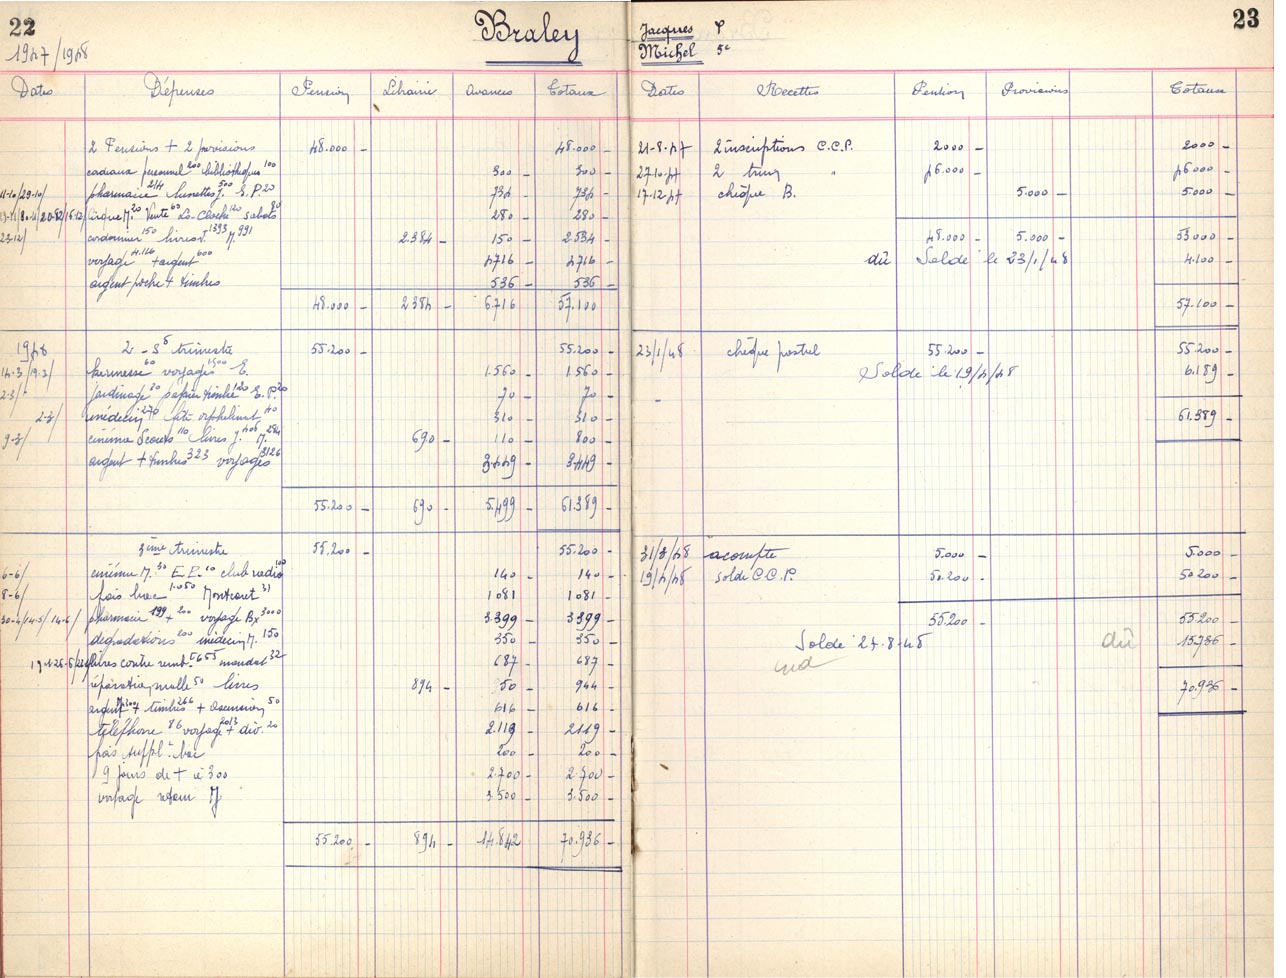 22
1947/1948
Braley
Dates Dépenses Pension Librairie Avances Totaux
2 Pensions + 2 provisions 48.000 – 48.000 –
cadeaux personnel 200 bibliothèque 100 300 – 300 –
11-10/29-10/ pharmacie 214 lunettes J. 500 E.P. 20 734 – 734 –
cirque M. 20 Vente 60 La Cloche 120 sabots 80 280 – 280 –
23-12/ cordonnier 150 livres J. 1393 M. 991 2.384 – 150 – 2.534
voyage 4.116 + argent 600 4716 – 4716 –
argent poche + timbres 536 – 536 –
48.000 – 2384 – 6.716 – 57.100
1948 2 – S trimestre 55.200 – 55.200 –
14-3/19-3/ kermesse 60 voyages 1500 E. 1.560 – 1.560 –
2-3/ jardinage papier timbré E.P. 20 70 – 70 –
2-3/ médecin 270 fête orphelinat 40 310 – 310 –
9-3/ cinéma Scouts 110 livres J. 406 M. 284 690 – 110 – 800
argent + timbres 323 voyages 3126 3.449 – 3.449 –
55.200 – 690 – 5.499 – 61.389 –
3ème trimestre 55.200 – 55.200 –
6-6/ cinéma M. 30 E.P. 10 club radio 100 140 – 140 –
8-6/ frais bac 1.050 Montcaret 31 1081 – 1081 –
pharmacie 199 + 200 voyage Bx 3000 3.399 – 3399 –
dégradations 200 médecin M. 150 350 – 350 –
livres contre remb. 655 mandat 32 687 – 687 –
réparation malle 50 livres 894 – 50 – 944 –
argent 300 + timbres 266 + Ascension 50 616 – 616 –
téléphone 86 voyage 2013 + div. 20 2.119 – 2119 –
frais suppl. bac 200 – 200 –
9 jours de + à 300 2.700 – 2.700 –
voyage retour M 3.500 – 3.500 –
55.200 – 894 – 14.842 70.936 –
Jacques
Michel 5e
23
Dates Recettes Pention Provisions Totaux
21-8-47 2 inscriptions C.C.P. 2000 – 2000 –
27-10-47 2 trim " 46.000 – 46000 –
17-12-47 chèque B. 5.000 – 5.000 –
48.000 – 5.000 – 53000 –
dû Soldé le 23/1/48 4.100 –
57.100 –
23/1/48 chèque postal 55.200 – 55.200 –
Solde le 19/4/48 6.189 –
61.389 –
31/3/48 acompte 5.000 – 5.000 –
19/4/48 solde C.C.P. 50.200 – 50 200 –
55.200 – 55.200 –
Solde 27.8.48 dû 15.736 –
70.936 –